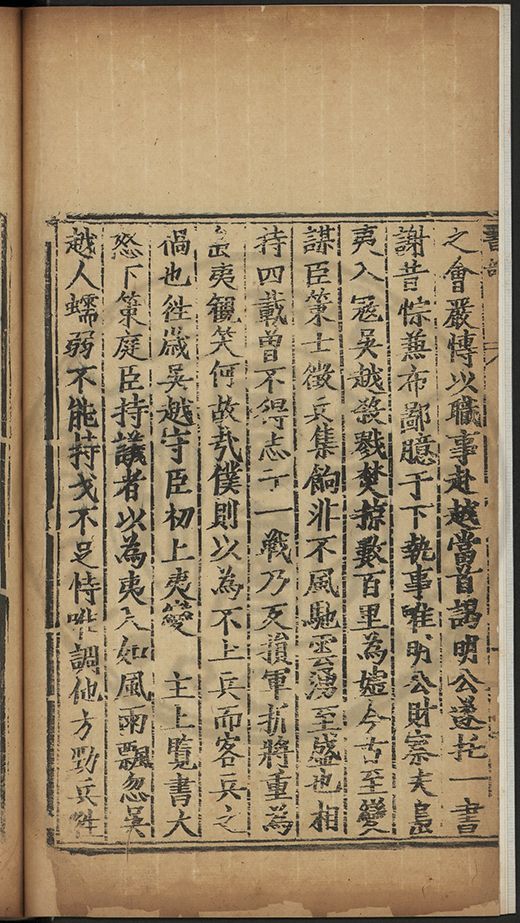 之會嚴慱以職事赴越當首謁明公遂托一書
謝昔悰兼布鄙臆于下執事唯明公財察夫島
夷入冦吳越殺戮焚掠數百里為墟今古至變
謀臣策士徵兵集餉非不風馳雲湧至盛也相
持四載曽不得志于一戰乃反損軍折將重為
島夷観笑何故㢤僕則以為不土兵而客兵之
禍也徃嵗吳越守臣初上夷變 主上覽書大
怒下策庭臣持議者以為夷人如風雨飄忽吳
越人蠕弱不能持戈不足恃唯調他方勁兵